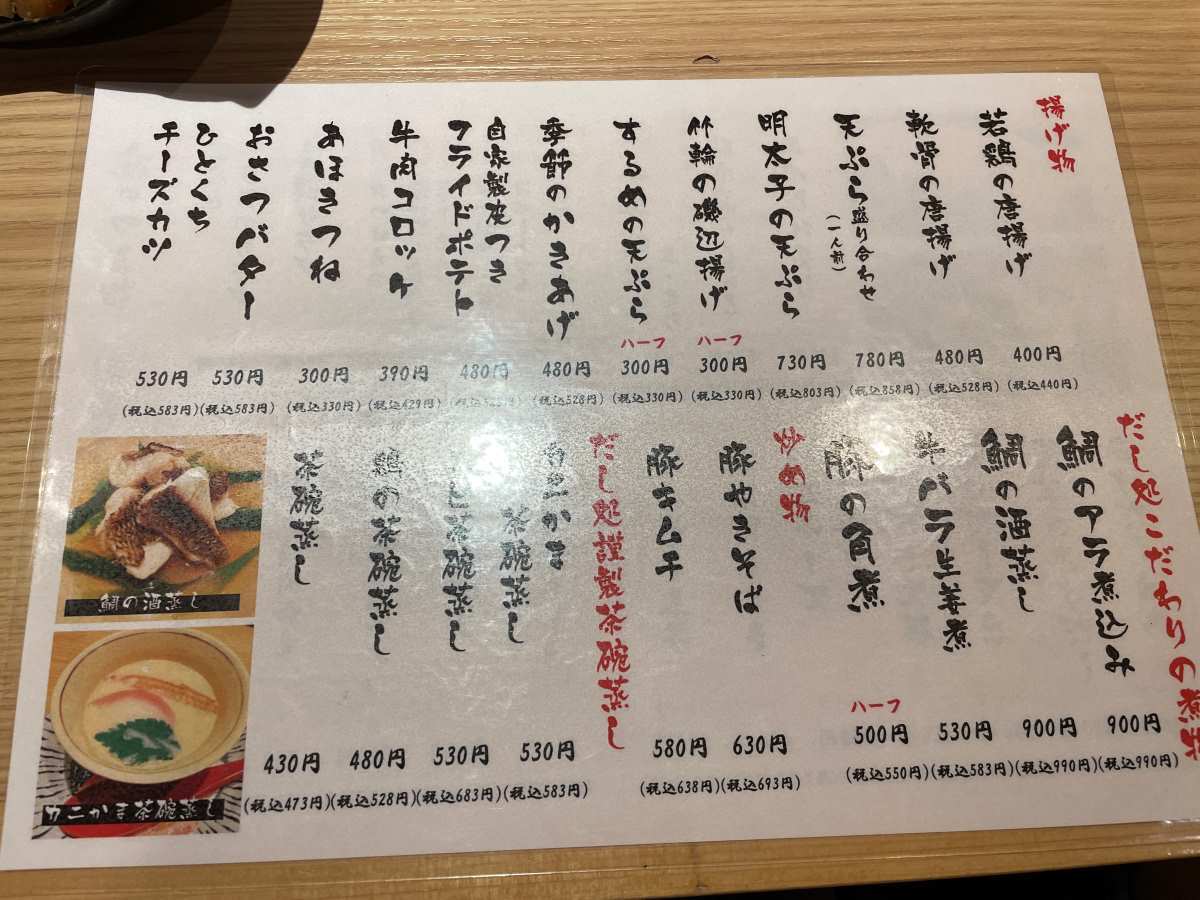 揚げ物
若鶏の唐揚げ
400円
(税込440円)
軟骨の唐揚げ
480円
(税込528円)
天ぷら盛り合わせ
(一人前)
780円
(税込858円)
明太子の天ぷら
730円
(税込803円)
竹輪の磯辺揚げ
ハーフ
300円
(税込330円)
するめの天ぷら
ハーフ
300円
(税込330円)
季節のかきあげ
480円
(税込528円)
自家製皮つき
フライドポテト
480円
(税込528円)
牛肉コロッケ
390円
(税込429円)
あほきつね
300円
(税込330円)
おさつバター
530円
(税込583円)
ひとくち
チーズカツ
530円
(税込583円)
だし処こだわりの煮物
鯛のアラ煮込み
900円
(税込990円)
鯛の酒蒸し
900円
(税込990円)
牛バラ生姜煮
530円
(税込583円)
豚の角煮
ハーフ
500円
(税込550円)
炒め物
豚やきそば
630円
(税込693円)
豚キムチ
580円
(税込638円)
だし処謹製茶碗蒸し
カニかま
茶碗蒸し
530円
(税込583円)
茶碗蒸し
530円
(税込683円)
鶏の茶碗蒸し
480円
(税込528円)
茶碗蒸し
430円
(税込473円)
鯛の酒蒸し
カニかま茶碗蒸し